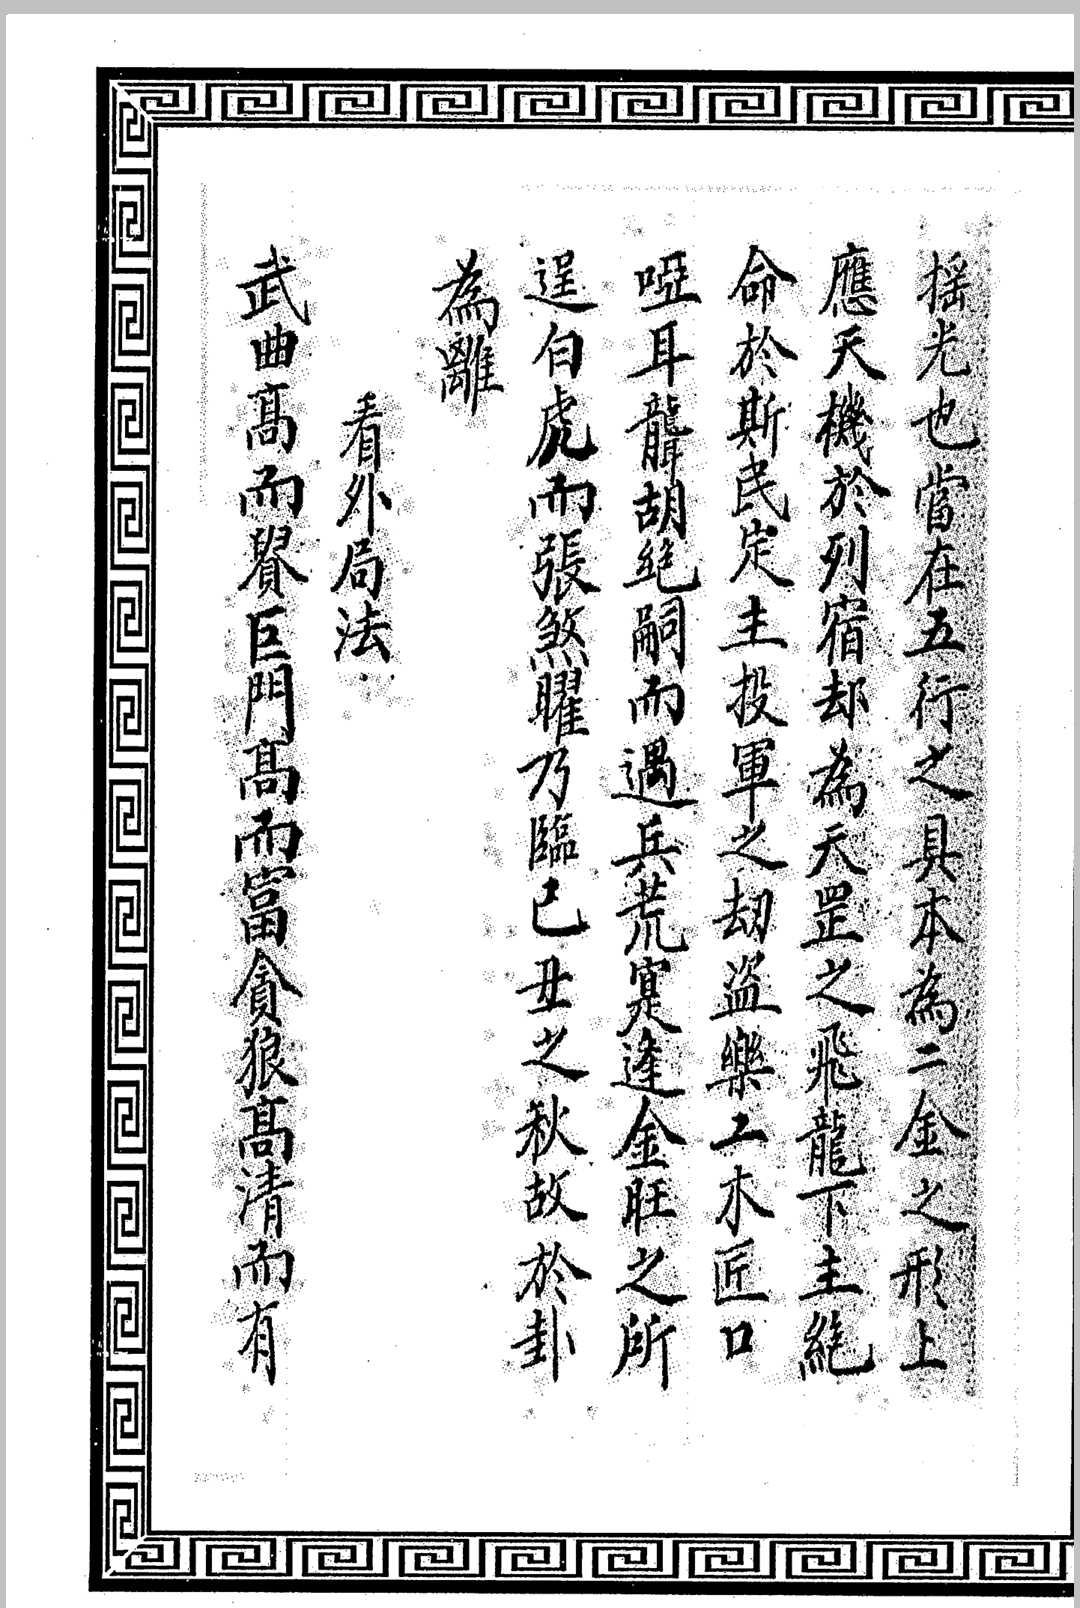 搖光也當在五行之具本為二金之形上
應天機於列宿却為天罡之飛龍下主絕
命於斯民定主投軍之劫盜樂工木匠口
啞耳聾胡絕嗣而遇兵荒寔逢金旺之所
逞白虎而張煞曜乃臨已丑之秋故於卦
為離
看外局法
武曲高而賢巨門高而富貪狼高清而有